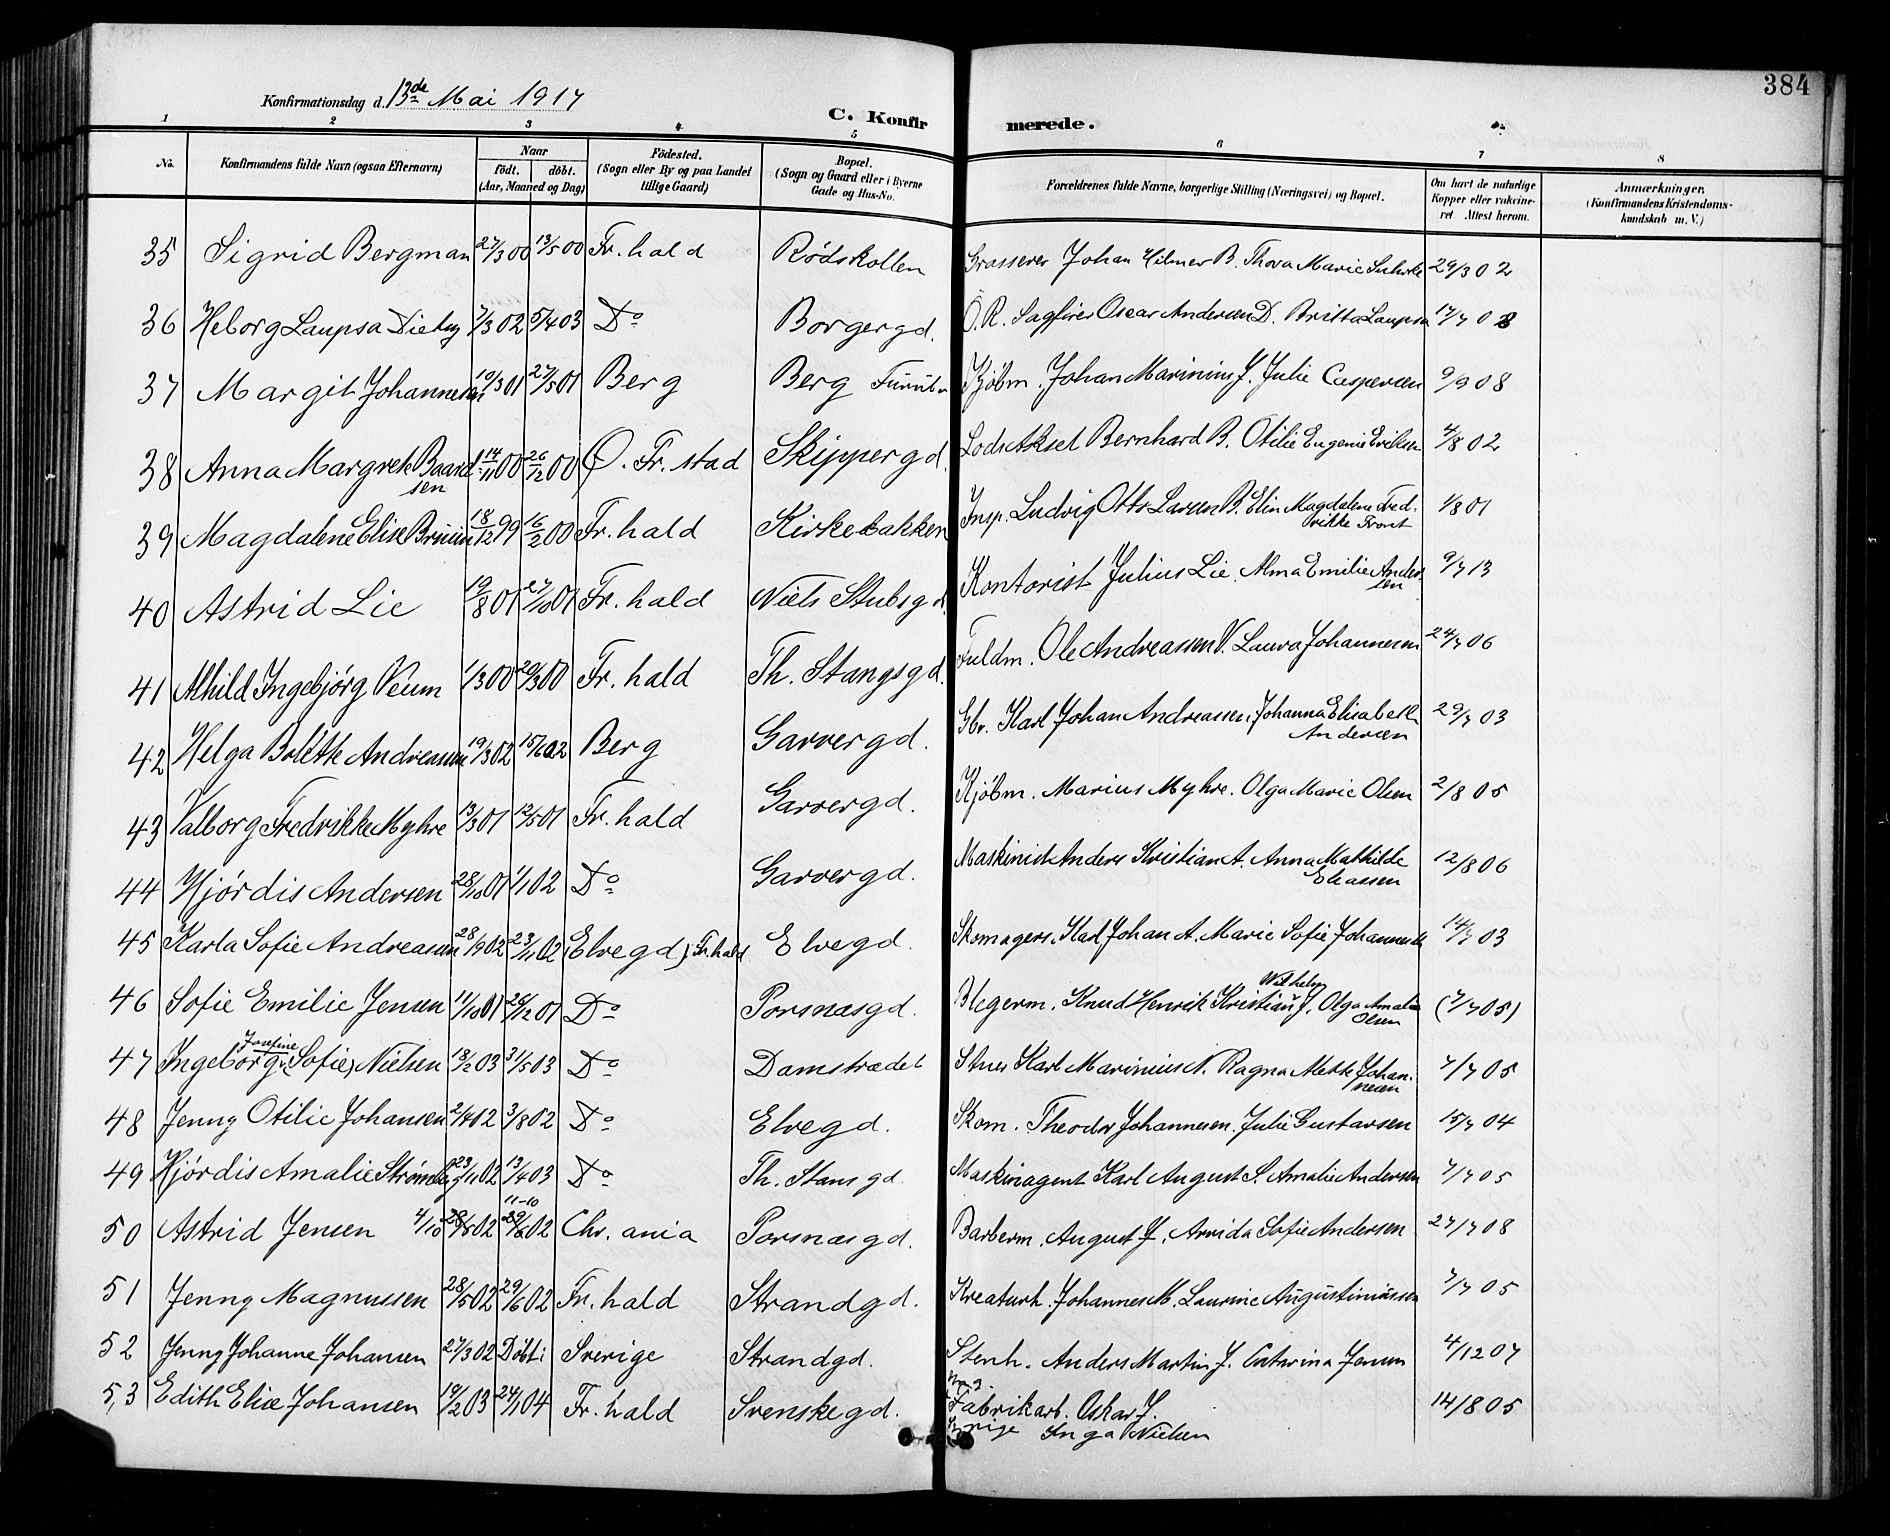 384
Konfirmationsdag d. 13de Mai 1917
C. Konfirmerede.
1 2 3 4 5 6 7 8
No. Konfirmandens fulde Navn (ogsaa Efternavn) Naar født. døbt. (Aar, Maaned og Dag) Födested. (Sogn eller By og paa Landet tillige Gaard) Bopæl. (Sogn og Gaard eller i Byerne Gade og Hus-No. Forældrenes fulde Navne, borgerlige Stilling (Næringsvei) og Bopæl. Om havt de naturlige Kopper eller vakcineret Attest herom. Anmærkninger. (Konfirmandens Kristendomskundskab m. V.)
35 Sigrid Bergman 27/3 00 13/5 00 Fr.hald Rödskollen Grosserer Johan Hilmer B. Thora Marie 29/3 02
36 Heborg Laupsa 7/3 02 5/4 03 Do Borgergd. O.R. Sagfører Oscar Andersen D. Britta Laupsa 17/7 08
37 Margit Johannesen 10/3 01 27/5 01 Berg Berg Kjøbm. Johan Marinius J. Julie Caspersen 9/9 08
38 Anna Margrete Baardsen 14/11 00 26/12 00 Ø. Fr.stad Skippergd. Lods Aksel Bernhard B. Otilie Eugenie Eriksen 4/8 02
39 Magdalene Elise 18/12 99 16/2 00 Fr.hald Kirkebakken Insp. Ludvig Otto Larsen B. Elin Magdalene Fredrikke 1/8 01
40 Astrid Lie 19/8 01 27/10 01 Fr.hald Niels Stubsgd. Kontorist Julius Lie. Alma Emilie Andersen 9/7 13
41 Alhild Ingebjørg Veum 1/3 00 20/3 00 Fr.hald Th. Stangsgd. Fuldm. Ole Andreassen V. Laura Johannesen 24/7 06
42 Helga Bolette Andreassen 19/3 02 15/6 02 Berg Garvergd. Gbr. Karl Johan Andreassen, Johanna Elisabeth Andersen 29/7 03
43 Valborg Fredrikke Myhre 13/3 01 12/5 01 Fr.hald Garvergd. Kjøbm. Marius Myhre. Olga Marie Olsen 2/8 05
44 Hjördis Andersen 28/10 01 1/1 02 Do Garvergd. Maskinist Anders Kristian A. Anna Mathilde Eliassen 12/8 06
45 Karla Sofie Andreasen 28/9 02 23/11 02 (Elvegd) Fr.hald Elvegd. Skomagers. Karl Johan A. Marie Sofie Johannesen 14/7 03
46 Sofie Emilie Jensen 11/10 01 26/12 01 Do Porsnæsgd. Blegerm. Knud Henrik Kristian Wilhelm J. Olga Amalie Olsen (7/7 05)
47 Ingeborg Josefine (Sofie) Nielsen 18/2 03 31/5 03 Do Damstrædet Stuer Karl Marinius N. Ragna Mette Johannesen 7/7 05
48 Jenny Otilie Johansen 2/4 02 3/8 02 Do Elvegd. Skom. Theodor Johannesen. Julie Gustavsen 15/7 04
49 Hjördis Amalie Strömberg 23/11 02 13/4 03 Do Th. Stansgd. Maskinagent Karl August S. Amalie Andersen 7/7 05
50 Astrid Jensen 4/10 02 11-10 02 Chr.ania Porsnæsgd. Barberm. August J. Arvida Sofie Andersen 27/7 08
51 Jenny Magnussen 28/5 02 29/6 02 Fr.hald Strandgd. Kreaturh. Johannes M. Laurine Augustinussen 7/7 05
52 Jenny Johanne Johansen 27/3 02 Döbt i Sverige Strandgd. Stenh. Anders Martin J. Catarina Jensen 4/12 07
53 Edith Elise Johansen 19/2 03 24/1 04 Fr.hald Svenskegd. Fabrikarb. Oskar J. Inga Nielsen 14/8 05